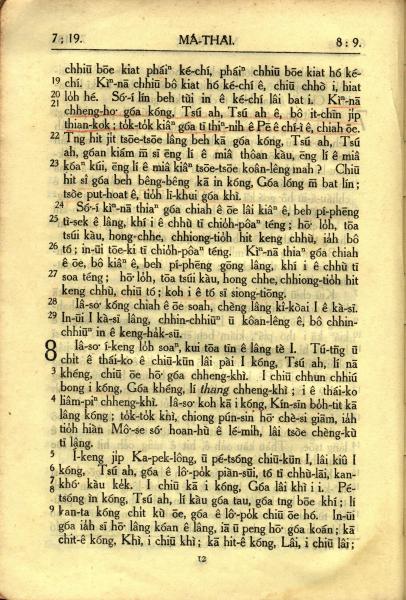 7 ; 19.
MÁ-THÀI.
8 : 9.
chhiū bōe kiat pháiⁿ ké-chí, pháiⁿ chhiū bōe kiat hó ké-
19 chí. Kìⁿ-nā chhiū bô kiat hó ké-chí ê, chiū chhò i, hiat
20 lòh hé. Só͘-í lín beh tùi in ê ké-chí lâi bat i. Kìⁿ-nā
21 chheng-ho͘ góa kóng, Tsú ah, Tsú ah ê, bô it-chīn ji̍p
thian-kok; to̍k-to̍k kiâⁿ góa tī thiⁿ-nih ê Pē ê chí-ì ê, chiah ōe.
22 Tng hit ji̍t tsōe-tsōe lâng beh kā góa kóng, Tsú ah, Tsú
ah, góan kiám m̄ sī ēng lí ê miâ thôan kàu, ēng lí ê miâ
23 kóaⁿ kúi, ēng lí ê miâ kiâⁿ tsōe-tsōe koân-lêng mah? Chiū
hit sî góa beh bêng-bêng kā in kóng, Góa lóng m̄ bat lín;
tsōe put-hoat ê, tio̍h lī-khui góa khì.
24 Só͘-í kìⁿ-nā thiaⁿ góa chiah ê ōe lâi kiâⁿ ê, beh pí-phēng
25 tì-sek ê lâng, khí i ê chhù tī chio̍h-pôaⁿ téng; hō͘ lo̍h, tōa
tsúi kàu, hong-chhe, chhiong-tio̍h hit keng chhù, ia̍h bô
26 tó; in-ūi tōe-ki tī chio̍h-pôaⁿ téng. Kìⁿ-nā thiaⁿ góa chiah
ê ōe, bô kiâⁿ ê, beh pí-phēng gōng lâng, khí i ê chhù tī
27 soa téng; hō͘ lo̍h, tōa tsúi kàu, hong chhe, chhiong-tio̍h hit
keng chhù, chiū tó; koh i ê tó sī siong-tiōng.
28 Iâ-so͘ kóng chiah ê ōe soah, chèng lâng kî-kòai I ê kà-sī.
29 In-ūi I kà-sī lâng, chhin-chhiūⁿ ū koân-lêng ê, bô chhin-
chhiūⁿ in ê keng-ha̍k-sū.
8 Iâ-so͘ í-keng lo̍h soaⁿ, kui tōa tīn ê lâng tè I. Tú-tn̄g ū
2 chi̍t ê thái-ko ê chiū-kūn lâi pài I kóng, Tsú ah, lí nā
3 khéng, chiū ōe hō͘ góa chheng-khì. I chiū chhun chhiú
bong i kóng, Góa khéng, lí thang chheng-khì; i ê thái-ko
4 liâm-piⁿ chheng-khì. Iâ-so͘ koh kā i kóng, Kín-sīn bo̍h-tit kā
lâng kóng; to̍k-to̍k khì, chiong pún-sin hō͘ chè-si giām, ia̍h
tio̍h hiàn Mô͘-se só͘ hoan-hù ê lé-mi̍h, lâi tsòe chèng-kù
tī lâng.
5 Í-keng ji̍p Ka-pek-lông, ū pé-tsóng chiū-kūn I, lâi kiû I
6 kóng, Tsú ah, góa ê lô͘-po̍k piàn-sūi, tó tī chhù-lāi, kan-
7 khó͘ kàu ke̍k. I chiū kā i kóng, Góa lâi khì i i. Pé-
8 tsóng ìn kóng, Tsú ah, lí kàu góa tau, góa tng bōe khí; lí
9 kan-ta kóng chi̍t kù ōe, góa ê lô͘-po̍k chiū ōe hó. In-ūi
góa ia̍h sī hō͘ lâng koán ê lâng, iā ū peng hō͘ góa koán; kā
chit-ê kóng, Khì, i chiū khì; kā hit-ê kóng, Lâi, i chiū lâi;
12